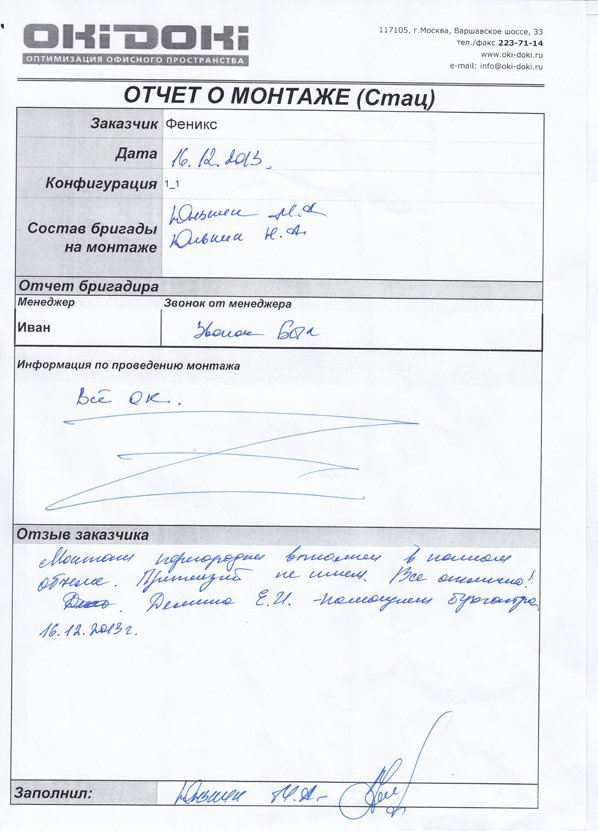 OKiDOKi
ОПТИМИЗАЦИЯ ОФИСНОГО ПРОСТРАНСТВА
117105, г.Москва, Варшавское шоссе, 33
тел./факс 223-71-14
www.oki-doki.ru
e-mail: info@oki-doki.ru
ОТЧЕТ О МОНТАЖЕ (Стац)
Заказчик Феникс
Дата 16.12.2013.
Конфигурация 1_1
Состав бригады на монтаже
М.А
Н.А.
Отчет бригадира
Менеджер Звонок от менеджера
Иван Звонок был
Информация по проведению монтажа
Всё ок.
Отзыв заказчика
Монтаж перегородки выполнен в полном
объеме. Притензий не имеем. Все отлично!
Е.И. - помощник бухгалтера
16.12.2013г.
Заполнил: М.А.